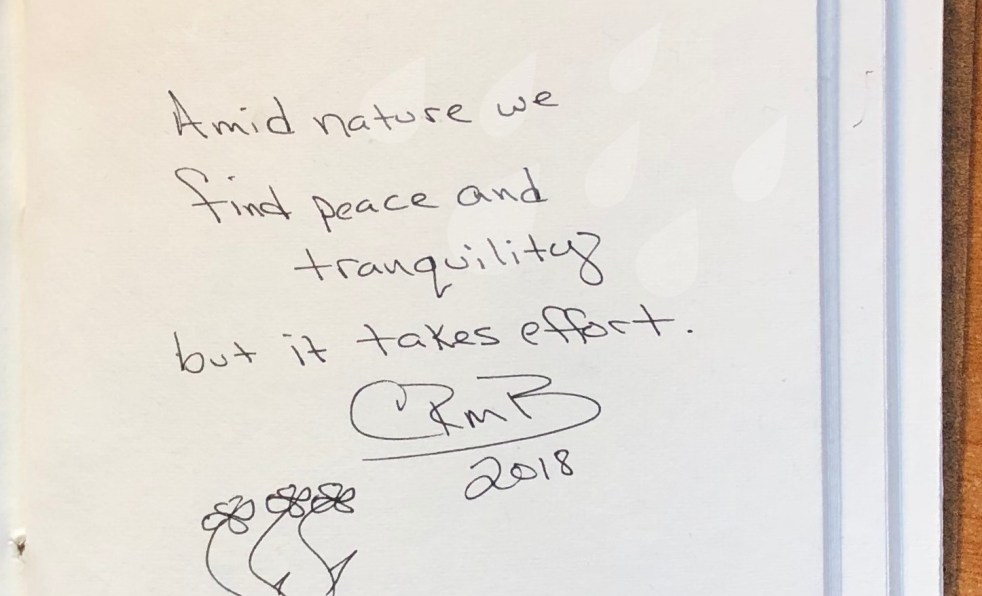 Amid nature we
find peace and
tranquility
but it takes effort.
CRmB
2018